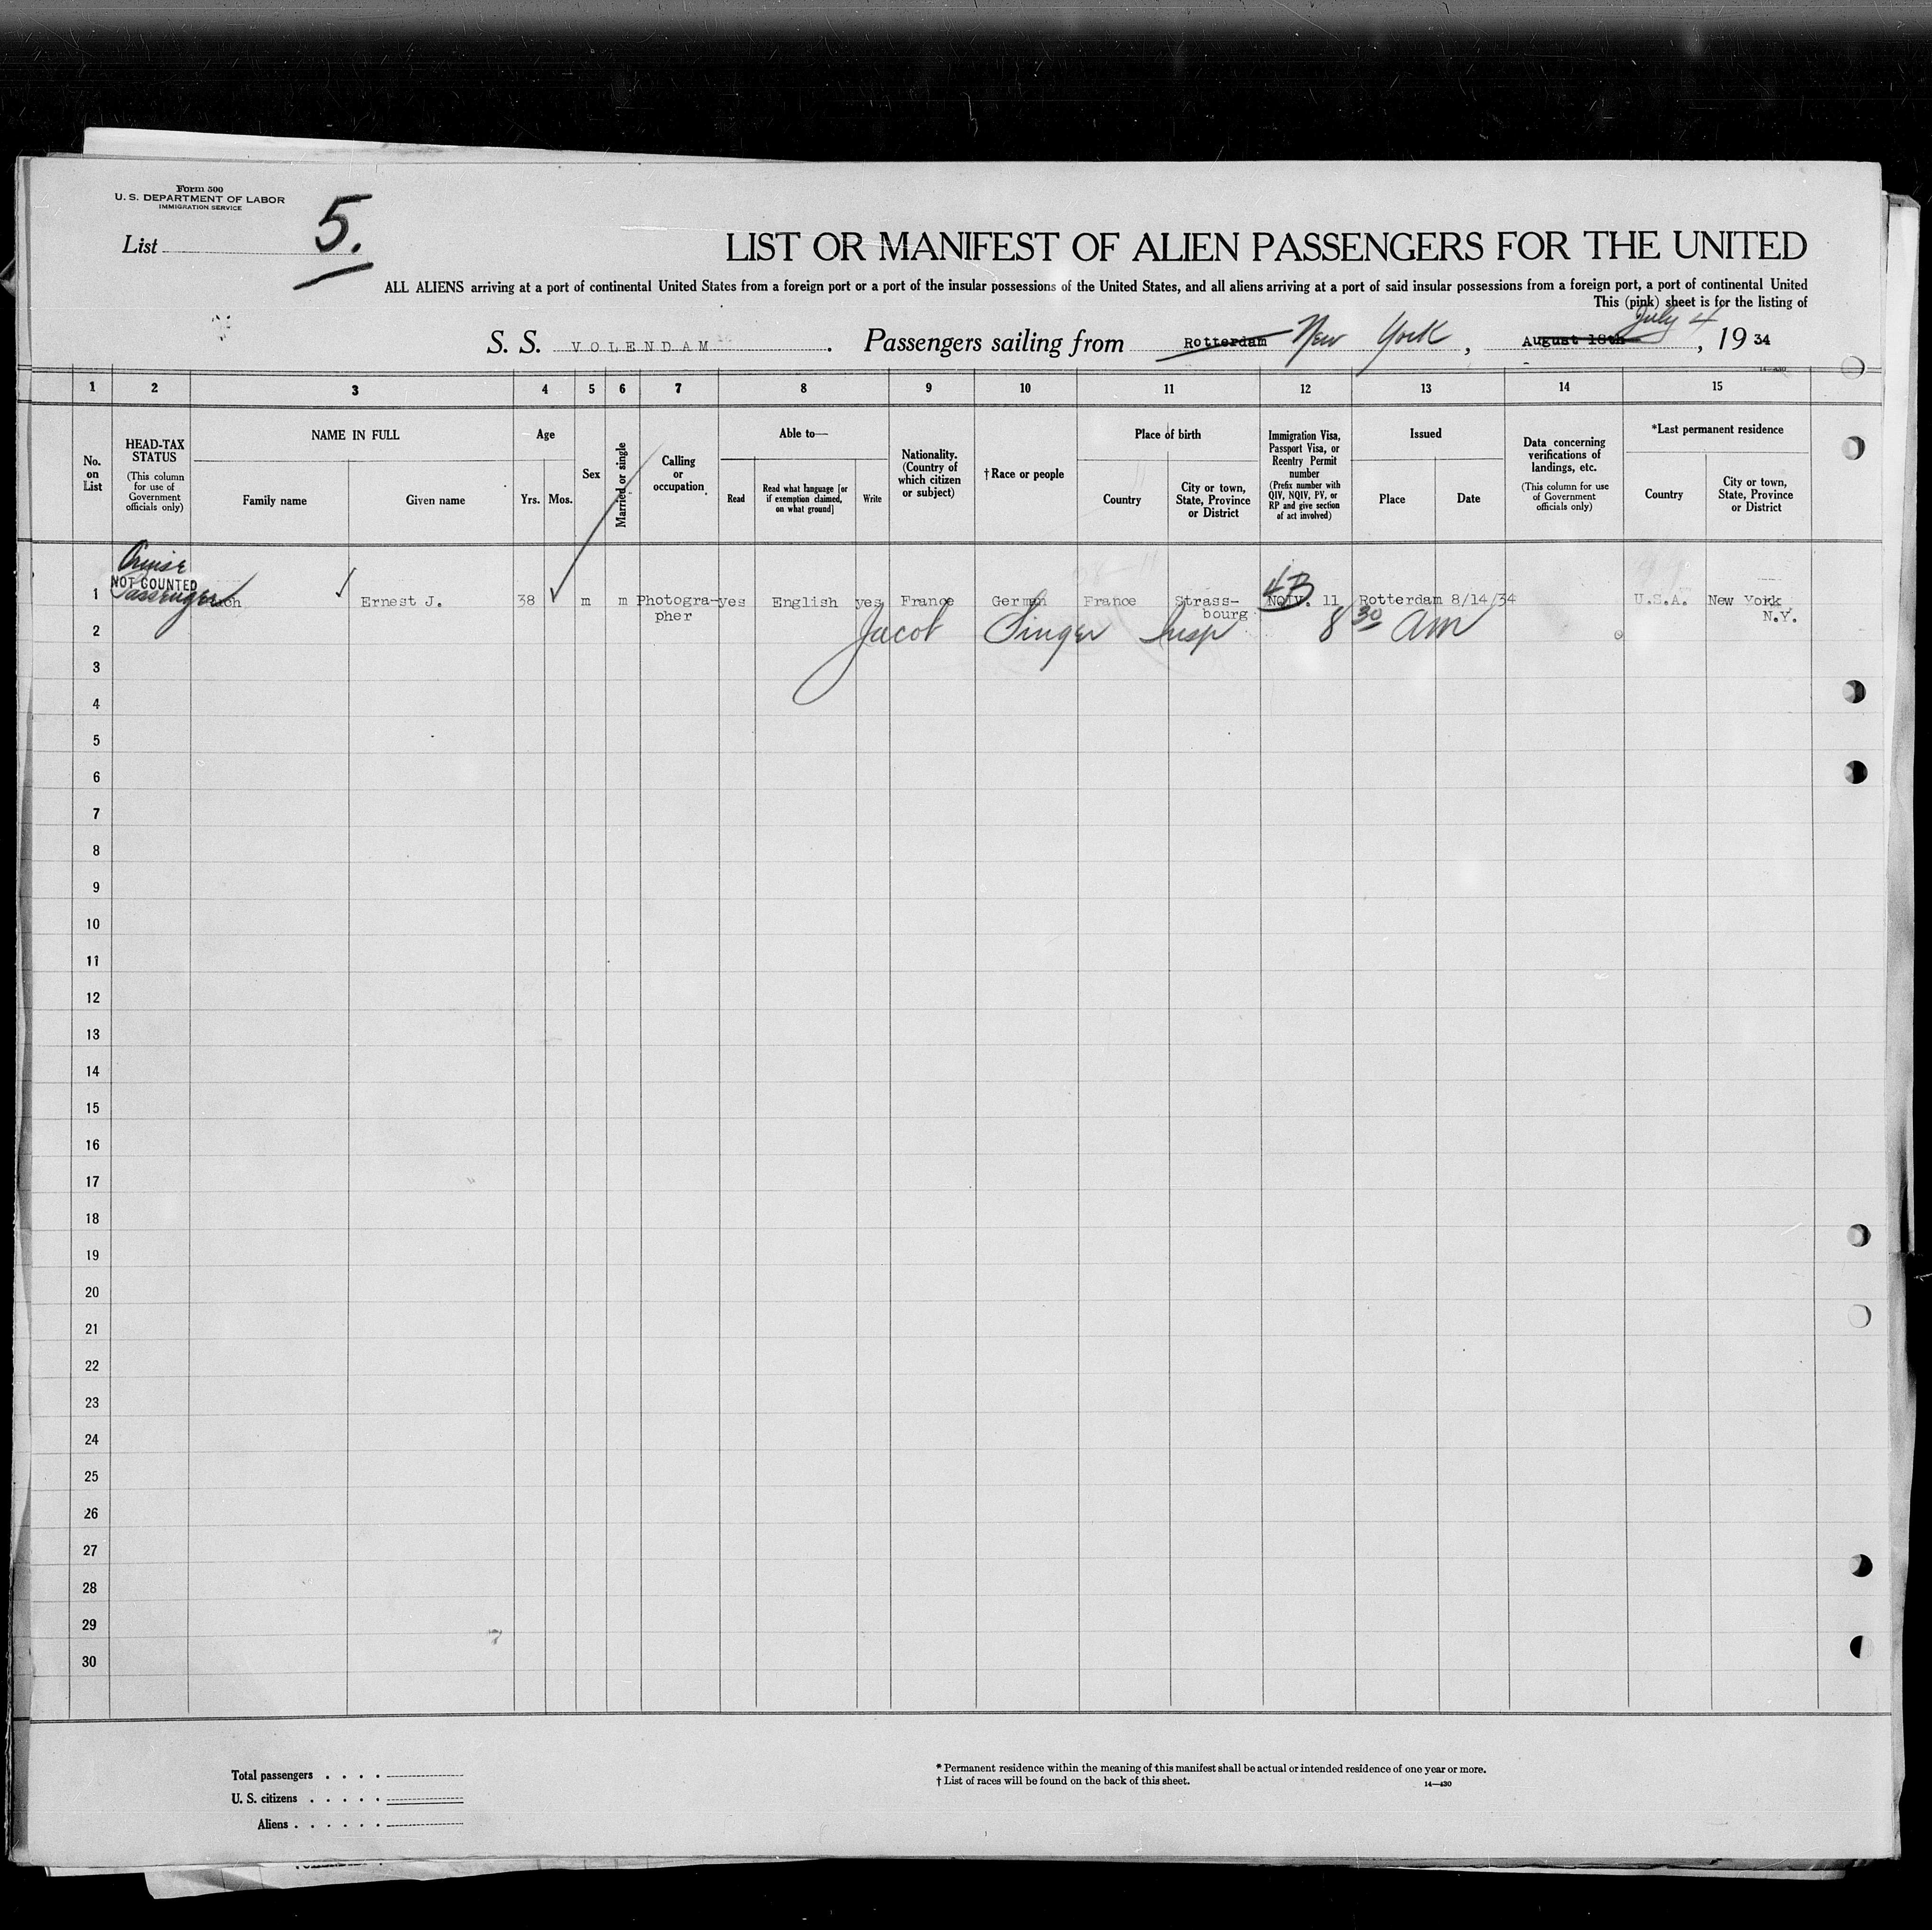 Form 500
U. S. DEPARTMENT OF LABOR
IMMIGRATION SERVICE
List 5.
LIST OR MANIFEST OF ALIEN PASSENGERS FOR THE UNITED
ALL ALIENS arriving at a port of continental United States from a foreign port or a port of the insular possessions of the United States, and all aliens arriving at a port of said insular possessions from a foreign port, a port of continental United
This (pink) sheet is for the listing of
July 4
S. S. VOLENDAM . Passengers sailing from Rotterdam New York , August 18th , 19 34
1 2 3 4 5 6 7 8 9 10 11 12 13 14 15
No. on List
HEAD-TAX STATUS
(This column for use of Government officials only)
NAME IN FULL
Family name
Given name
Age
Yrs. Mos.
Sex
Married or single
Calling or occupation
Able to—
Read
Read what language [or if exemption claimed, on what ground]
Write
Nationality. (Country of which citizen or subject)
† Race or people
Place of birth
Country
City or town, State, Province or District
Immigration Visa, Passport Visa, or Reentry Permit number
(Prefix number with QIV, NQIV, PV, or RP and give section of act involved)
Issued
Place
Date
Data concerning verifications of landings, etc.
(This column for use of Government officials only)
*Last permanent residence
Country
City or town, State, Province or District
Cruise
NOT COUNTED
Passenger
1 Ernest J. 38 m m Photogra- yes English yes France German France Strass- NQIV. 11 Rotterdam 8/14/34 U.S.A. New York
pher bourg N.Y.
4B
2 Jacob Singer Insp 8 30 am
3
4
5
6
7
8
9
10
11
12
13
14
15
16
17
18
19
20
21
22
23
24
25
26
27
28
29
30
Total passengers . . . .
U. S. citizens . . . . .
Aliens . . . . . .
* Permanent residence within the meaning of this manifest shall be actual or intended residence of one year or more.
† List of races will be found on the back of this sheet. 14—430